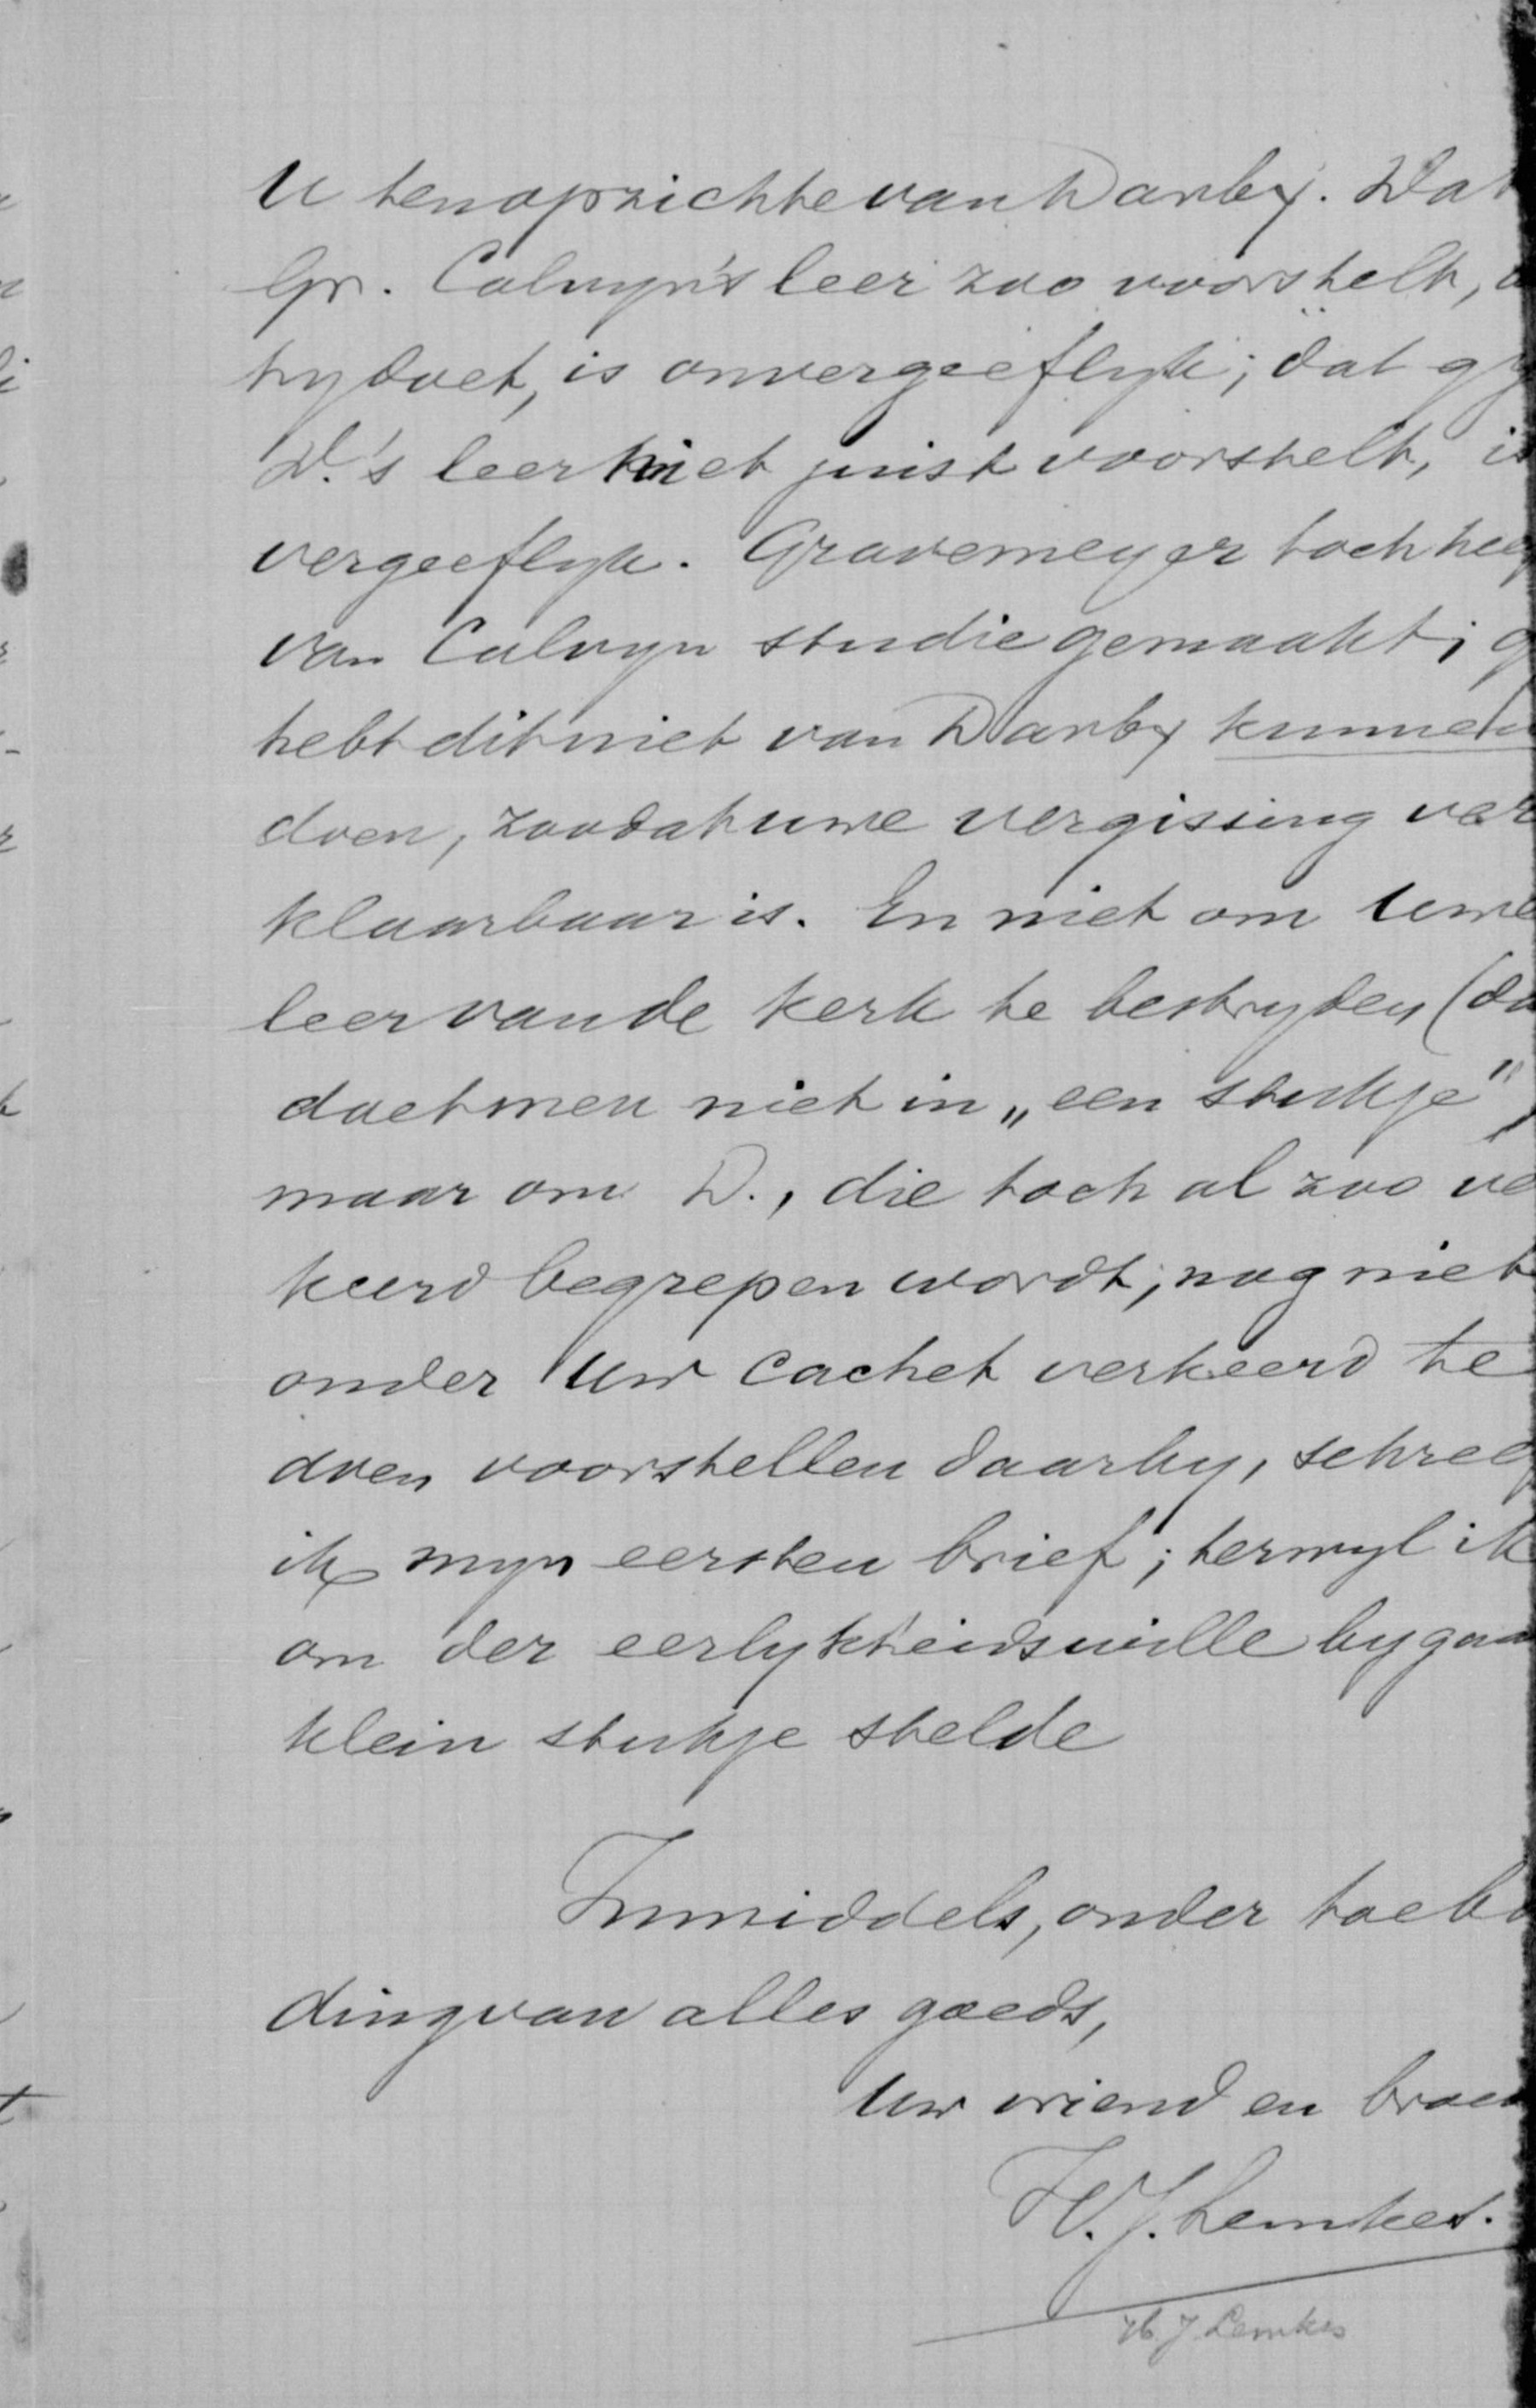 U ten opzichte van Darby. Dat
Gr. Calvyn's leer zoo voorstelt,
hy doet, is onvergeeflyk; dat gy
D.'s leer niet juist voorstelt, is
vergeeflyk. Gravemeyer toch hee
van Calvyn studie gemaakt; g
hebt dit niet van Darby kunnen
doen, zoodat uwe vergissing ver
klaarbaar is. En niet om Uwe
leer van de kerk te bestryden (da
doet men niet in „een stukje"
maar om D., die toch al zoo ve
keerd begrepen wordt, nog niet
onder Uw cachet verkeerd te
doen voorstellen daarby, schreef
ik myn eersten brief; terwyl ik
om der eerlykheidswille bygaa
klein stukje stelde
Inmiddels, onder toeb
ding van alles goeds,
Uw vriend en broed
H.J. Lemkes.
H. J. Lemkes